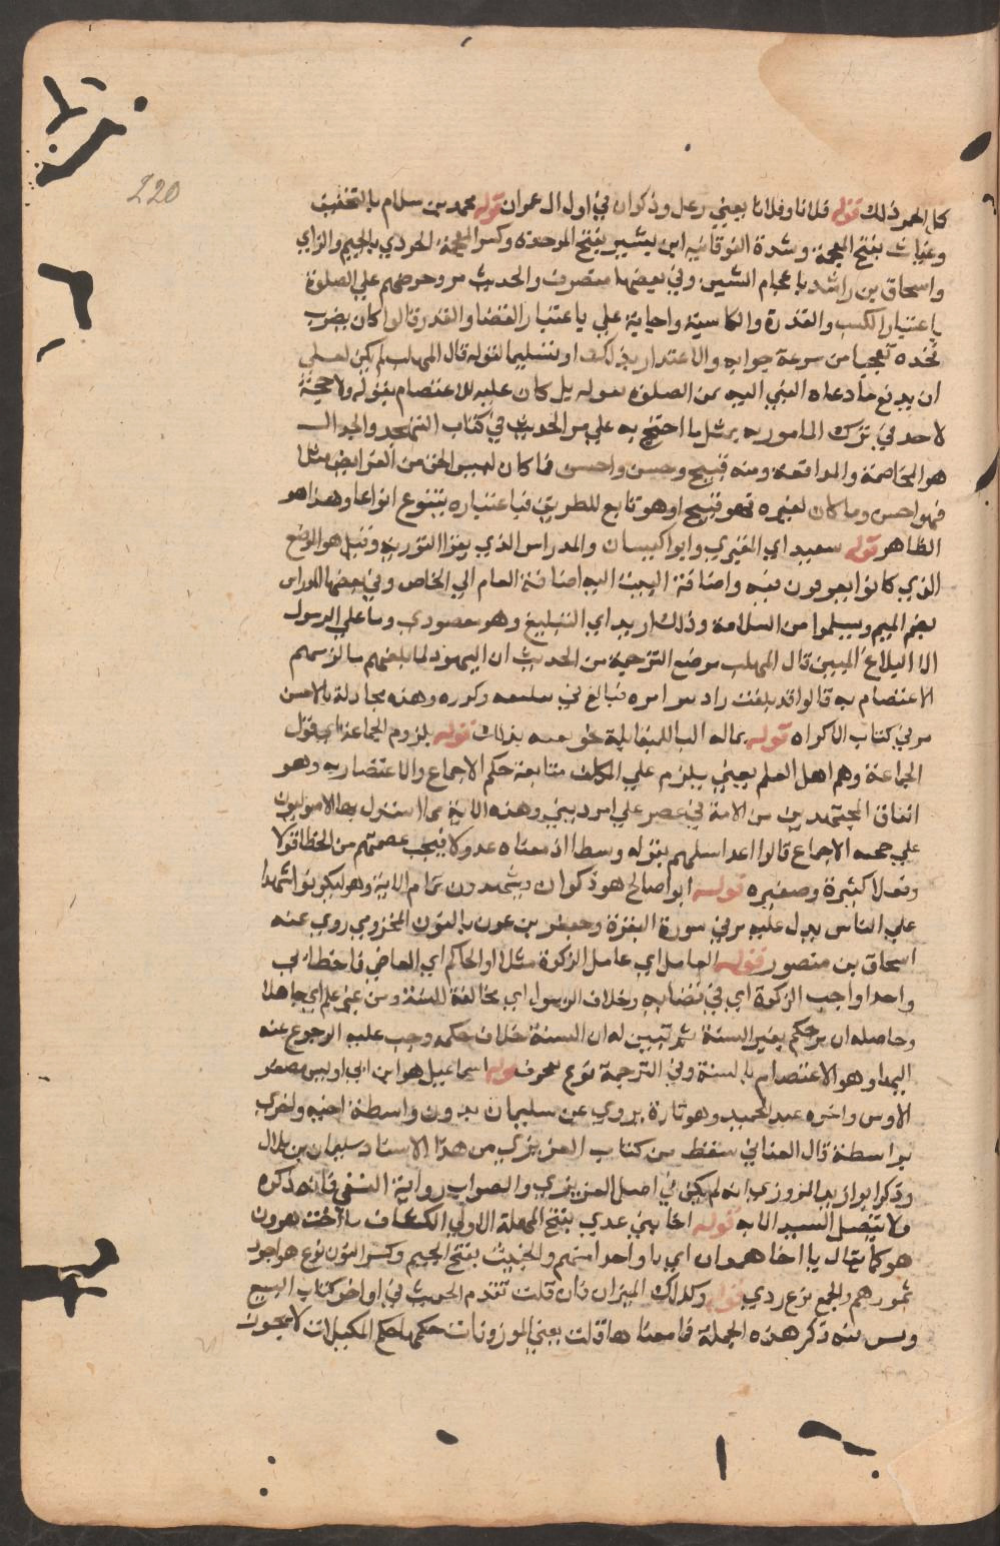 220
كل امر ذلك قوله فلانا وفلانا يعني رعل وذكوان في اول ال عمران قوله محمد بن سلام بالتخفيف
وعتاب بفتح المهملة وشدة الفوقانية ابن بشير بفتح الموحدة وكسر المعجمة الجزري بالجيم والزاي
واسحاق بن راشد باعجام الشين وفي بعضها متصرف والحديث مر وحرضهم علي الصلوة
باعتبار الكسب والقدرة واجابة علي باعتبار القضا والقدر قالوا كان يضرب
فخذه تعجبا من سرعة جوابه والاعتذار بذلك او تسليما لقوله قال المهلب لم يكن لعلي
ان يدفع ما دعاه النبي اليه من الصلوة بقوله بل كان عليه الاعتصام بقوله ولا حجة
لاحد في ترك المامور به بمثل ما احتج به علي مر الحديث في كتاب التهجد والجدال
هو المخاصمة والمدافعة ومنه قبيح وحسن واحسن فما كان لتبيين الحق من الفرايض مثلا
فهو احسن وما كان لغيره فهو قبيح او هو تابع للطريق فباعتباره يتنوع انواعا وهذا هو
الظاهر قوله سعيد اي المقبري وابوا كيسان والمدراس الذي يقرا التورية وقيل هو الموضع
الذي كانوا يقرون فيه واضافة البيت اليه اضافة العام الي الخاص وفي بعضها المدراس
بضم الميم ويسلموا من السلامة وذلك اريد اي التبليغ وهو مقصودي وما علي الرسول
الا البلاغ المبين قال المهلب موضع الترجمة من الحديث ان اليهود لما بلغهم ما لزمهم
الاعتصام به قالوا قد بلغت راد من امره فبالغ في تبليغه وكرره وهذه مجادلة بالاحسن
مر في كتاب الاكراه قوله بماله الباللمقابلة نحو بعته بذلك قوله بلزوم الجماعة اي قول
الجماعة وهم اهل العلم يعني يلزم علي المكلف متابعة حكم الاجماع والاعتضاد به وهو
اتفاق المجتهدين من الامة في عصر علي امر ديني وهذه الاية مما استدل بها الاصوليون
علي حجية الاجماع قالوا عدلهم بقوله وسطا اذ معناه عدولا فيجب عصمتهم من الخطا قولا
وفعلا كبيرة وصغيره قوله ابو صالح هو ذكوان ويشهدون تمام الاية وهو ليكونوا شهدا
علي الناس يدل عليه مر في سورة البقرة وجعفر بن عون بالنون المخزومي روي عنه
اسحاق بن منصور قوله العامل اي عامل الزكوة مثلا او الحاكم اي القاضي فاخطا في
واحدا واجب الزكوة اي في قضايه وخلاف الرسول اي مخالفة للسنة ومن غير علم اي جاهلا
وحاصله ان من حكم بغير السنة ثم تبين له ان السنة خلاف حكمه وجب عليه الرجوع عنه
اليها وهو الاعتصام بالسنة وفي الترجمة نوع تعجرف قوله اسماعيل هو ابن ابي اويس مصغر
الاوس واخوه عبد الحميد وهو تارة يروي عن سليمان بدون واسطة اخيه واخري
بواسطة قال الغساني سقط من كتاب الفربري من هذا الاسناد سليمان بن بلال
وذكر ابو زيد المروزي انه لم يكن في اصل الفربري والصواب رواية النسفي فانه ذكره
ولا يتصل السند الا به قوله اخا بني عدي بفتح المهملة الاولي الكشاف يا اخت هرون
هو كما يقال يا اخا همدان اي يا واحدا منهم والجنيب بفتح الجيم وكسر النون نوع هو اجود
تمورهم والجمع نوع ردي قوله وكذلك الميزان فان قلت تقدم الحديث في اواخر كتاب البيع
وليس فيه ذكر هذه الجملة فما معناها قلت يعني الموزونات حكمها حكم المكيلات لا يجوز